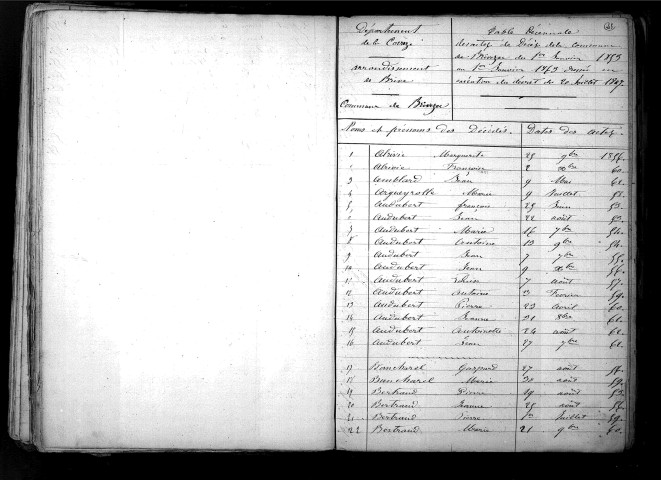 Département
de la Corrèze
arrondissement
de Brive
Commune de
Table Décennale
des actes de Décès de la commune
de du 1er Janvier 1853
au 1er Janvier 1863 en
exécution du décret de 20 Juillet 1807.
Noms et prénoms des Décédés. Dates des actes.
1 Marguerite 25 9bre
2 Françoise 2 Xbre 60.
3 Amblard Jean 9 Mai
4 Argueyrolle Marie 9 Juillet
5 Audubert françois 25 Juin 53.
6 Audubert Jean 22 août
7 Audubert Marie 16 7bre 54.
8 Audubert Antoine 13 9bre 54.
9 Audubert Jean 7 7bre 55.
10 Audubert Jean 9 Xbre
11 Audubert 7 août 57.
12 Audubert Antoine 3 Février 59.
13 Audubert Pierre 23 Avril 60.
14 Audubert Jeanne 8bre
15 Audubert Antoinette 24 août
16 Audubert Jean 27 7bre
17 Bancharel Gaspard 27 août
18 Bancharel Marie 30 août
19 Bertrand Pierre 19 août
20 Bertrand Jeanne 25 août
21 Bertrand Pierre 1er Juillet 59.
22 Bertrand Marie 21 9bre 60.